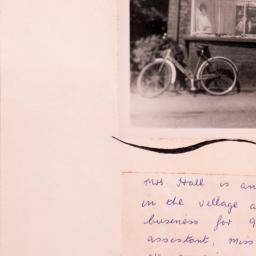 Mrs. Hall is an
in the village a
business for
assistant, Miss